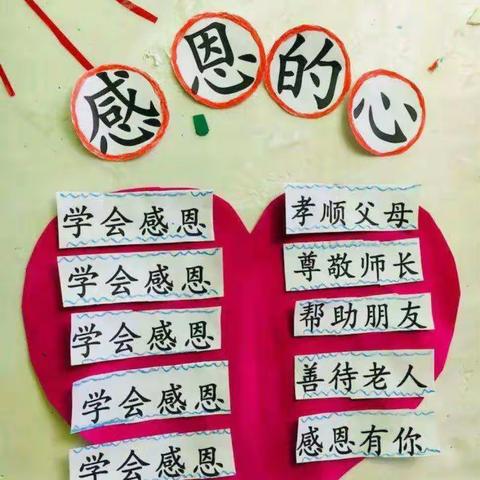 感恩的心
学会感恩 孝顺父母
学会感恩 尊敬师长
学会感恩 帮助朋友
学会感恩 善待老人
学会感恩 感恩有你